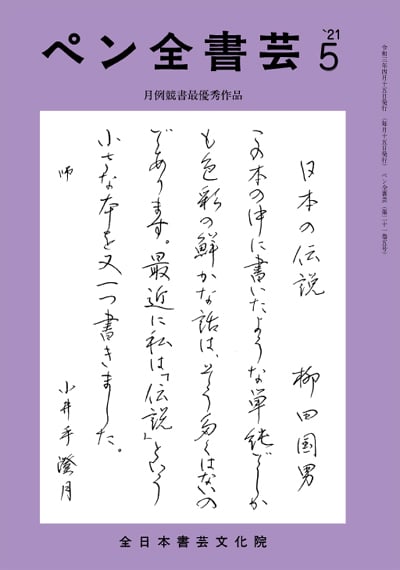 ペン全書芸
'21
5
月例競書最優秀作品
令和三年四月十五日発行（毎月十五日発行）ペン全書芸（第二十一巻五号）
日本の伝説　柳田国男
この本の中に書いたような単純でしか
も色彩の鮮かな話は、そう多くはないの
であります。最近に私は「伝説」という
小さな本を又一つ書きました。
師　小井手澄月
全日本書芸文化院